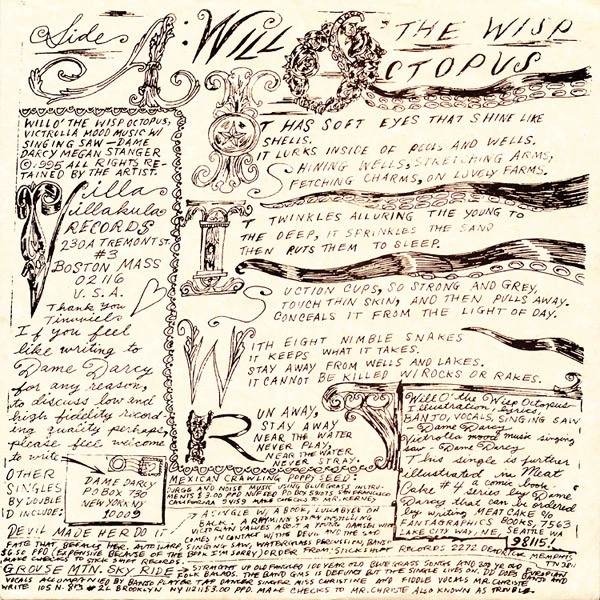 Side A: WILL O THE WISP
OCTOPUS
WILL O' THE WISP OCTOPUS,
VICTROLLA MOOD MUSIC W/
SINGING SAW — DAME
DARCY MEGAN STANGER
© 1995 ALL RIGHTS RE-
TAINED BY THE ARTIST.
Villa
Villakula
RECORDS
230A TREMONT ST.
#3
BOSTON MASS
02116
U.S.A.
Thank You
Tinuviel
If you feel
like writing to
Dame Darcy
for any reason,
to discuss low and
high fidelity record-
ing quality perhaps,
please feel welcome
to write
DAME DARCY
PO BOX 730
NEW YORK NY
10009
OTHER
SINGLES
BY DOUBLE
D INCLUDE:
IT HAS SOFT EYES THAT SHINE LIKE
SHELLS.
IT LURKS INSIDE OF POOLS AND WELLS.
SHINING WELLS, STRETCHING ARMS,
FETCHING CHARMS, ON LOVELY FARMS.
IT TWINKLES ALLURING THE YOUNG TO
THE DEEP, IT SPRINKLES THE SAND
THEN PUTS THEM TO SLEEP.
SUCTION CUPS, SO STRONG AND GREY,
TOUCH THIN SKIN, AND THEN PULLS AWAY.
CONCEALS IT FROM THE LIGHT OF DAY.
WITH EIGHT NIMBLE SNAKES
IT KEEPS WHAT IT TAKES.
STAY AWAY FROM WELLS AND LAKES.
IT CANNOT BE KILLED W/ ROCKS OR RAKES.
RUN AWAY,
STAY AWAY
NEAR THE WATER
NEVER PLAY,
NEAR THE WATER
NEVER STRAY.
Will O' the Wisp Octopus
Illustration, lyrics,
BANJO, VOCALS, SINGING SAW
– Dame Darcy
Victrolla mood music singing
saw – Dame Darcy
This single is further
illustrated in Meat
Cake #4 a comic book
series by Dame
Darcy that can be ordered
by writing MEAT CAKE %
FANTAGRAPHICS BOOKS, 7563
LAKE CITY WAY, NE, SEATTLE WA
98115
MEXICAN CRAWLING POPPY SEED:
DIRGE AND PUNK MUSIC USING BLUEGRASS INSTRU-
MENTS $3.00 PPD NUF SED PO BOX SAN FRANCISCO
CALIFORNIA 94159 MAKE CHECKS TO M. KEARNEY
DEVIL MADE HER DO IT
A SINGLE W/ A BOOK, LULLABYES ON
BACK, A RHYMING STORY
VICTORIAN VALUES ABOUT A YOUNG
COMES IN CONTACT WITH THE DEVIL AND THE
FATE THAT BEFALLS HER. AUTOHARP, SINGING SAW, WATERGLASSES
$6.50 PPD (EXPENSIVE BECAUSE OF THE BOOK I'M SORRY) ORDER FROM: STICKSHIFT RECORDS 2272 DEADRICK MEMPHIS
MAKE CHECKS TO STICK SHIFT RECORDS. TN 38114
GROUSE MTN. SKY RIDE → STRAIGHT UP OLD FASHIONED 100 YEAR OLD BLUEGRASS SONGS AND 200 YR OLD EUROPEAN
FOLK BALADS. THE BAND GMS IS DEFUNCT BUT THE SINGLE LIVES ON. DD DOES BANJO AND
VOCALS ACCOMPANIED BY BANJO PLAYER TAP DANCER SINGER MISS CHRISTINE AND FIDDLE VOCALS MR. CHRISTE
WRITE 105 N. 3RD #2L BROOKLYN NY 11211 $3.00 PPD. MAKE CHECKS TO MR. CHRISTE ALSO KNOWN AS TROUBLE.